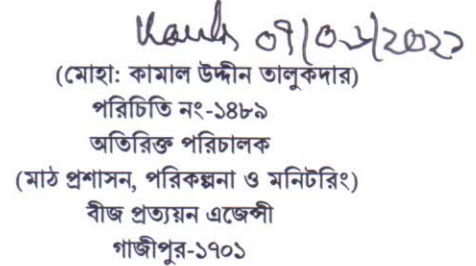 (মোহা: কামাল উদ্দীন তালুকদার)
পরিচিতি নং-১৪৮৯
অতিরিক্ত পরিচালক
(মাঠ প্রশাসন, পরিকল্পনা ও মনিটরিং)
বীজ প্রত্যয়ন এজেন্সী
গাজীপুর-১৭০১